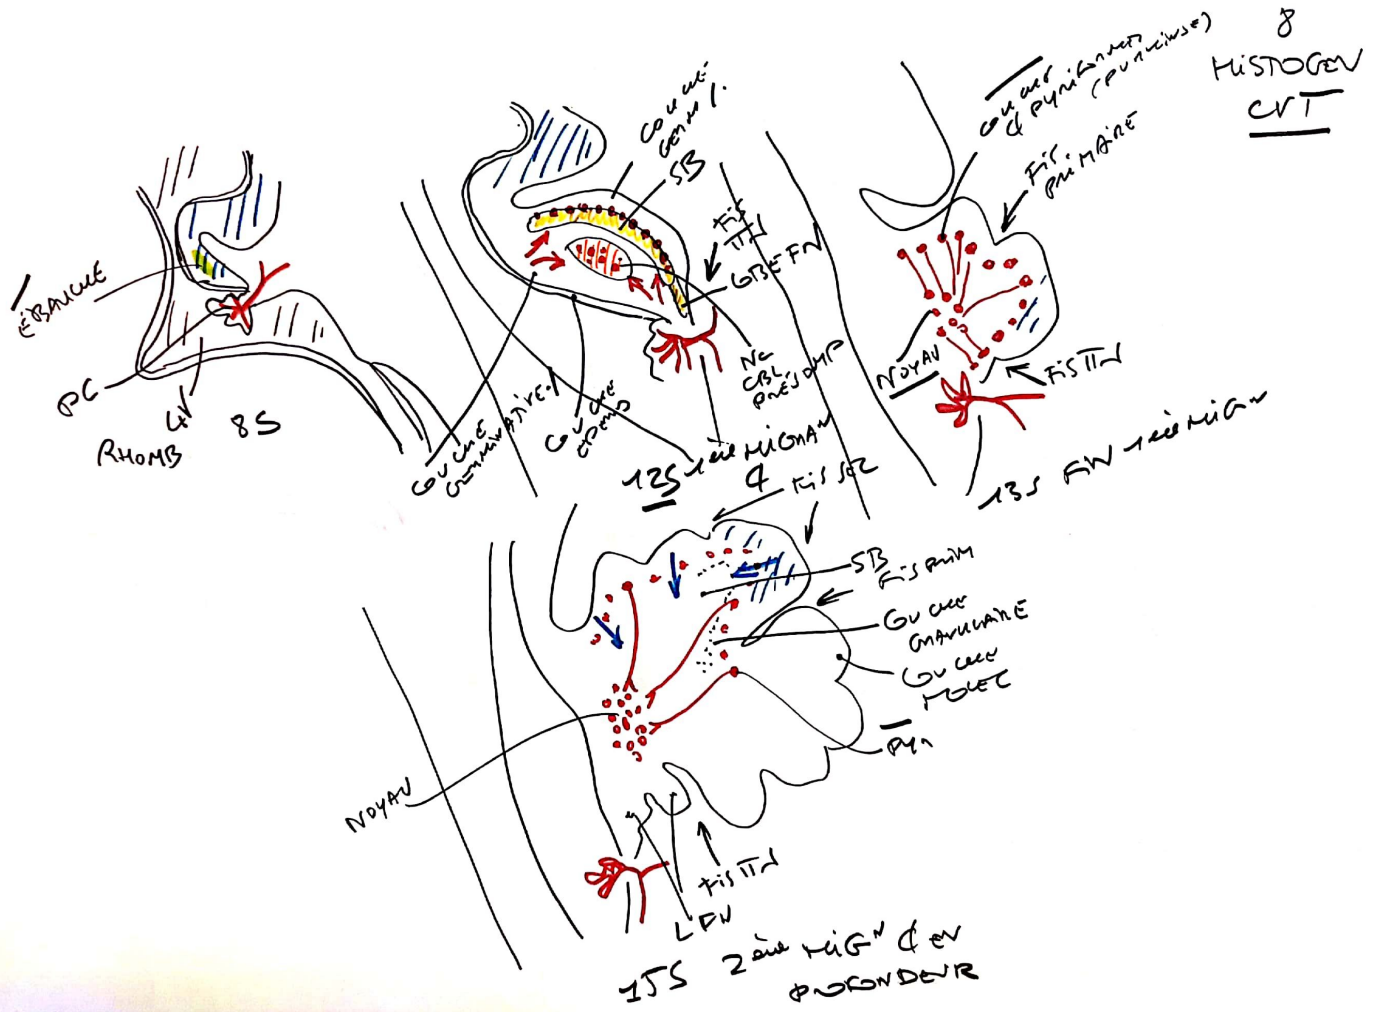 8
HISTOGEN
CVT
ÉBAUCHE
PC
4V
RHOMB
8S
COUCHE
GERM.
SB
FIS
GBEFN
COUCHE
GERMINATIVE
COUCHE
EPEND
NC
CBL
PRÉSOMP
12S 1ère MIGRAN
¢
COUCHE
¢ PYRIFORMES
(PURKINJE)
FIS
PRIMAIRE
NOYAU
13S FIN 1ère MIGN
FIS SEC
SB
FIS PRIM
COUCHE
GRANULAIRE
COUCHE
MOLEC
PYR
NOYAU
15S 2ème MIGN ¢ EN
PROFONDEUR